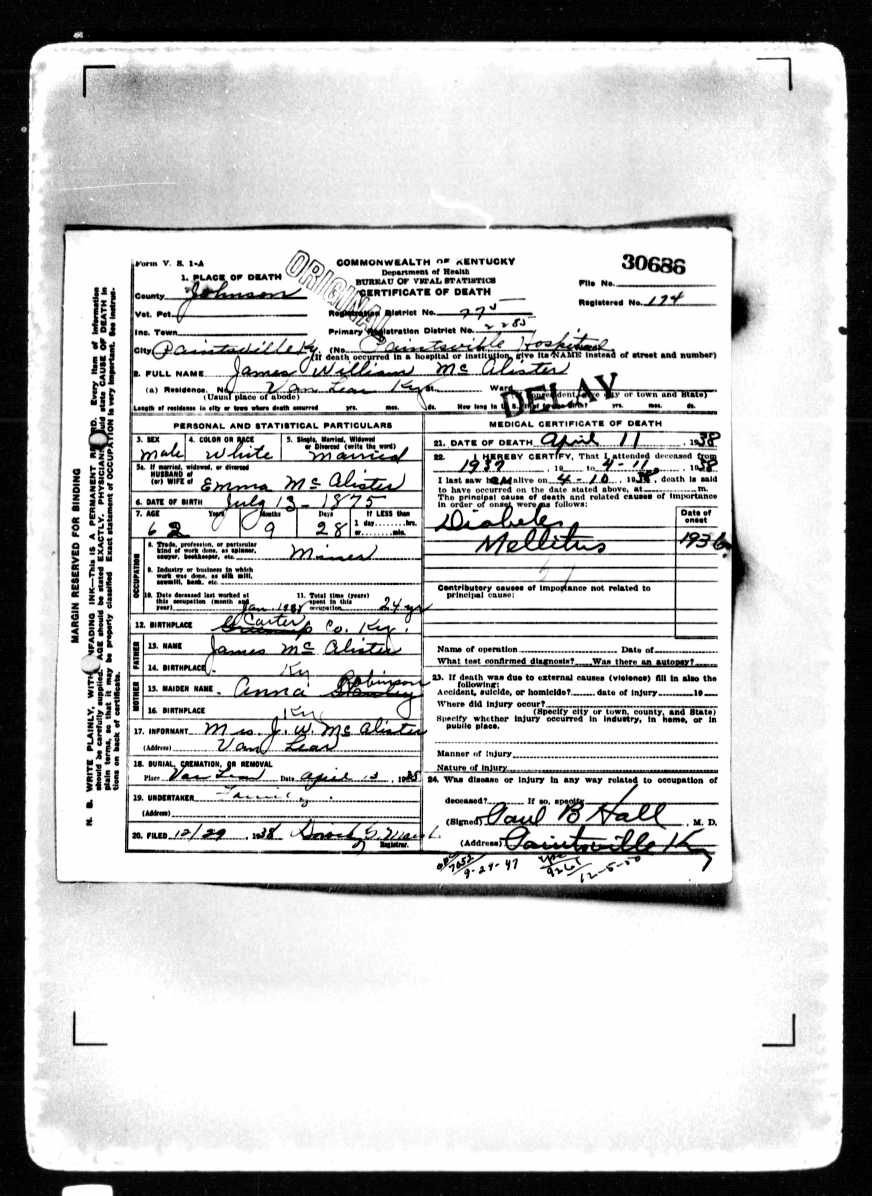 Form V. S. 1-A
COMMONWEALTH OF KENTUCKY
Department of Health
BUREAU OF VITAL STATISTICS
CERTIFICATE OF DEATH
ORIGINAL
30686
File No.
Registered No. 174
1. PLACE OF DEATH
County Johnson
Vot. Pct.
Registration District No. 775
Inc. Town
Primary Registration District No. 2285
City Paintsville Ky (No. Paintsville Hospital
(If death occurred in a hospital or institution, give its NAME instead of street and number)
2. FULL NAME James William McAlister
(a) Residence. No. Van Lear Ky St. Ward
(Usual place of abode)
DELAY
Length of residence in city or town where death occurred yrs. mos. ds. How long in U. S. yrs. mos. ds.
PERSONAL AND STATISTICAL PARTICULARS
3. SEX Male
4. COLOR OR RACE White
5. Single, Married, Widowed or Divorced (write the word) Married
5a. If married, widowed, or divorced
HUSBAND of
(or) WIFE of Emma McAlister
6. DATE OF BIRTH July 13-1875
7. AGE 62 Years 9 Months 28 Days If LESS than
1 day........hrs.
or........min.
OCCUPATION
8. Trade, profession, or particular
kind of work done, as spinner,
sawyer, bookkeeper, etc. Miner
9. Industry or business in which
work was done, as silk mill,
sawmill, bank, etc.
10. Date deceased last worked at
this occupation (month and
year) Jan. 1938
11. Total time (years)
spent in this
occupation 24 yr
12. BIRTHPLACE Carter Greenup Co. Ky.
FATHER
13. NAME James McAlister
14. BIRTHPLACE Ky
MOTHER
15. MAIDEN NAME Anna Robinson
16. BIRTHPLACE Ky
17. INFORMANT Mrs. J. W. McAlister
(Address) Van Lear
18. BURIAL, CREMATION, OR REMOVAL
Place Van Lear Date April 13, 1938
19. UNDERTAKER Family.
(Address)
20. FILED 12/29, 1938
Registrar.
MEDICAL CERTIFICATE OF DEATH
21. DATE OF DEATH April 11, 1938
22. I HEREBY CERTIFY, That I attended deceased from
1937, 19 to 4-11, 1938
I last saw him alive on 4-10, 1938, death is said
to have occurred on the date stated above, at m.
The principal cause of death and related causes of importance
in order of onset were as follows:
Date of onset
Diabetes
Mellitus 1936
Contributory causes of importance not related to
principal cause:
Name of operation Date of
What test confirmed diagnosis? Was there an autopsy?
23. If death was due to external causes (violence) fill in also the
following:
Accident, suicide, or homicide? date of injury 19
Where did injury occur?
(Specify city or town, county, and State)
Specify whether injury occurred in industry, in home, or in
public place.
Manner of injury
Nature of injury
24. Was disease or injury in any way related to occupation of
deceased? If so, specify
(Signed) Paul B Hall, M. D.
(Address) Paintsville Ky
7052
9-24-47
9261
12-5-50
MARGIN RESERVED FOR BINDING
N. B. WRITE PLAINLY, WITH UNFADING INK—This is A PERMANENT RECORD. Every item of information
should be carefully supplied. AGE should be stated EXACTLY. PHYSICIANS should state CAUSE OF DEATH in
plain terms, so that it may be properly classified. Exact statement of OCCUPATION is very important. See instruc-
tions on back of certificate.